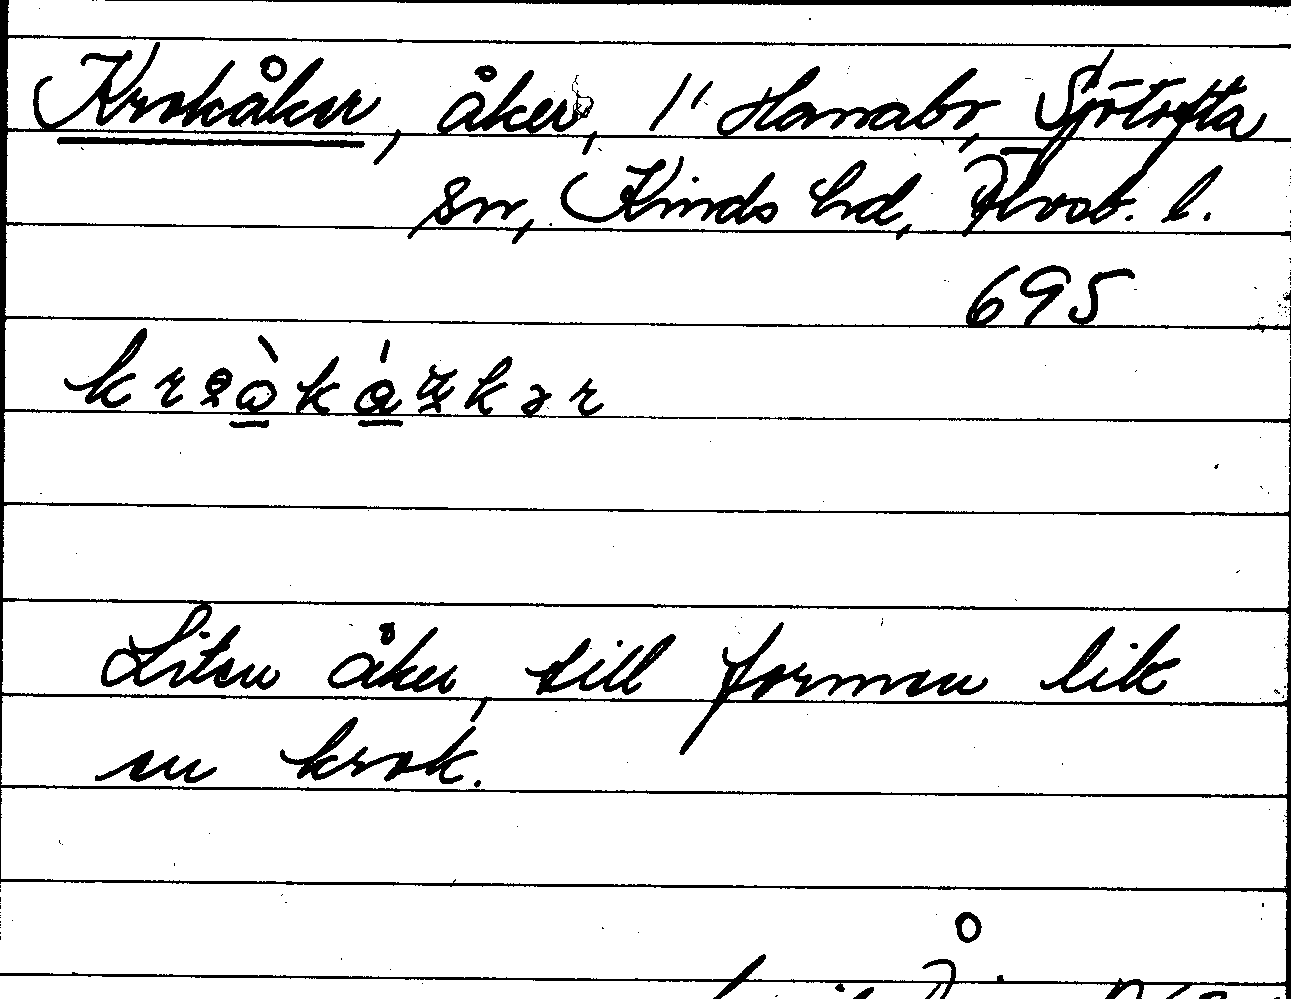 Krokåker, åker, 1" Hanabr, Sjötofta
sn, Kinds hd, Älvsb. l.
695
Liten åker, till formen lik
en krok.